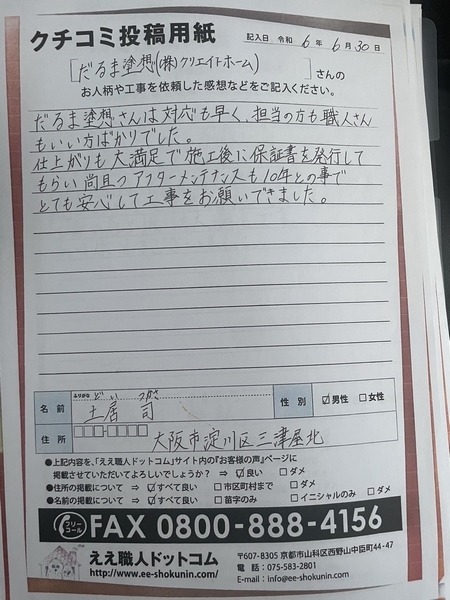 クチコミ投稿用紙
記入日 令和 6年 6月 30日
[だるま塗想(株)クリエイトホーム)]さんの
お人柄や工事を依頼した感想などをご記入ください。
だるま塗想さんは対応も早く、担当の方も職人さん
もいい方ばかりでした。
仕上がりも大満足で施工後に保証書を発行して
もらい尚且つアフターメンテナンスも10年との事で
とても安心して工事をお願いできました。
ふりがな どい つかさ
名前 土居 司
性別 ☑男性 □女性
住所 大阪市淀川区三津屋北
●上記内容を、「ええ職人ドットコム」サイト内の『お客様の声』ページに
掲載させていただいてよろしいでしょうか? ⇒ ☑良い □ダメ
●住所の掲載について ⇒ ☑すべて良い □市区町村まで □ダメ
●名前の掲載について ⇒ ☑すべて良い □苗字のみ □イニシャルのみ □ダメ
フリーコール FAX 0800-888-4156
ええ職人ドットコム
http://www.ee-shokunin.com/
〒607-8305 京都市山科区西野山中臣町44-47
電話:075-583-2801
E-mail:info@ee-shokunin.com